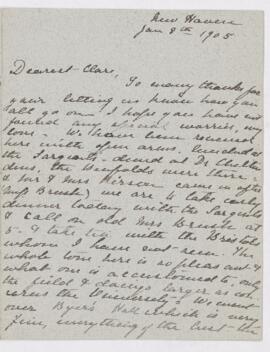 New Haven
Jan 8th 1905
Dearest Clare,
So many thanks for
your letting us know how you
all go on. I hope you have not
had any worries, my
love. We have been received
here with open arms. Lunched at
the Sargents - dined at Dr
the were there
& Mr & Mrs came in after
Miss Brush) we are to take early
dinner today with the Sargents
& call on old Mrs Brush at
5 - & take tea with the Bristols
whom I have not seen. The
whole tone here is so pleasant &
what one is accustomed to, only
the field & doings larger as
the University. We went
over Byers Hall which is very
fine, everything of the best - the